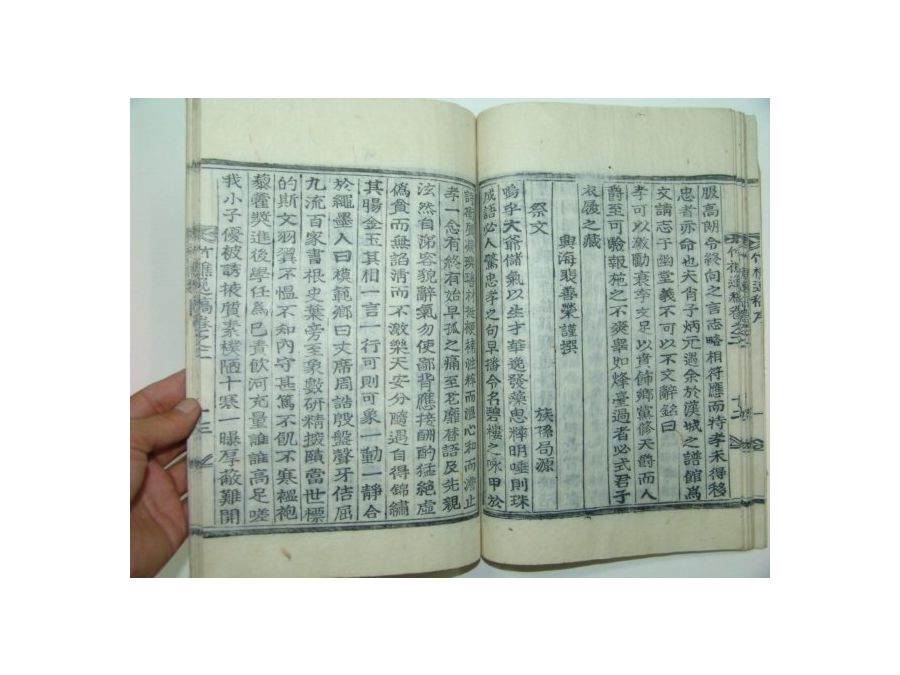 服高朗令終向之言志略相符應而特孝未得移
忠者亦命也夫胄子炳元過余於漢城之譜館爲
文請志于幽堂義不可以不文辭銘曰
孝可以激勵衰季文足以賁飾鄉黨修天爵而人
爵至可驗報施之不爽擧如烽臺過者必式君子
衣履之藏
興海裴善榮謹撰
祭文
族孫局源
嗚乎大爺儲氣以生才華逸發藻思粹明唾則珠
成語必人驚忠孝之句早播令名碧樓之咏甲於
孝一念有終有始早孤之痛至老靡替語及先親
泫然自涕容貌辭氣勿使鄙背應接酬酌猛絶虛
僞貧而無諂淸而不激樂天安分隨遇自得錦繡
其腸金玉其相一言一行可則可象一動一靜合
於繩墨人曰模範鄉曰丈席周誥殷盤聲牙佶屈
九流百家書根史葉旁至象數研精揆賾當世標
的斯文羽翼不慍不知內守甚篤不飢不寒縕袍
藜藿奬進後學任爲己責飮河充量誰誰高足嗟
我小子優被誘掖質素樸陋十寒一曝厚蔽難開